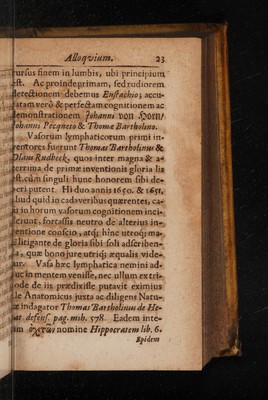 Alloquium. 23
rursus finem in lumbis, ubi principium
est. Ac proinde primam, sed rudiorem
detectionem debemus Eustachio; accu-
ratam verò & perfectam cognitionem ac
demonstrationem Johanni von Horn/
Johanni Pecqueto & Thomæ Bartholino.
Vasorum lymphaticorum primi in-
ventores fuerunt Thomas Bartholinus &
Olaus Rudbeck, quos inter magna & a-
cerrima de primæ inventionis gloria lis
est, cùm singuli hunc honorem sibi de-
beri putent. Hi duo annis 1650. & 1651.
aliud quid in cadaveribus quærentes, ca-
su in horum vasorum cognitionem inci-
derunt, fortassis neutro de alterius in-
ventione conscio, atq; hinc utroq; ma-
litigante de gloria sibi soli adscriben-
da, quæ bono jure utriq; æqualis vide-
tur. Vasa hæc lymphatica nemini ad-
huc in mentem venisse, nec ullum extri-
code de iis prædixisse putavit eximius
ille Anatomicus juxta ac diligens Natu-
ræ indagator Thomas Bartholinus de He-
pat. defens. pag. mih. 578. Eadem inte-
rim ὀχετῶν nomine Hippocratem lib. 6.
Epidem